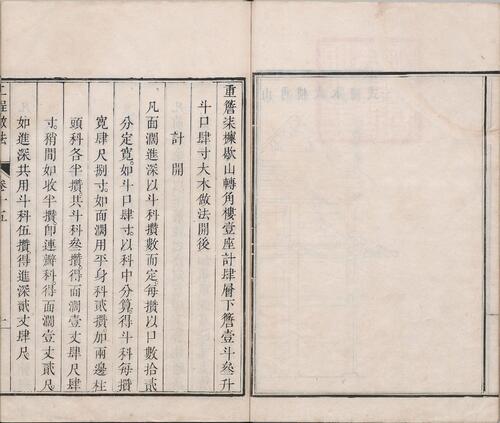 重簷柒檩歇山轉角樓壹座計肆層下簷壹斗叁升
斗口肆寸大木做法開後
計開
凡面濶進深以斗科攢數而定每攢以口數拾貳
分定寬如斗口肆寸以科中分算得斗科每攢
寬肆尺捌寸如面濶用平身科貳攢加兩邊柱
頭科各半攢共斗科叁攢得面濶壹丈肆尺肆
寸稍間如收半攢即連瓣科得面濶壹丈貳尺
如進深共用斗科伍攢得進深貳丈肆尺
工程做法
卷十五
一